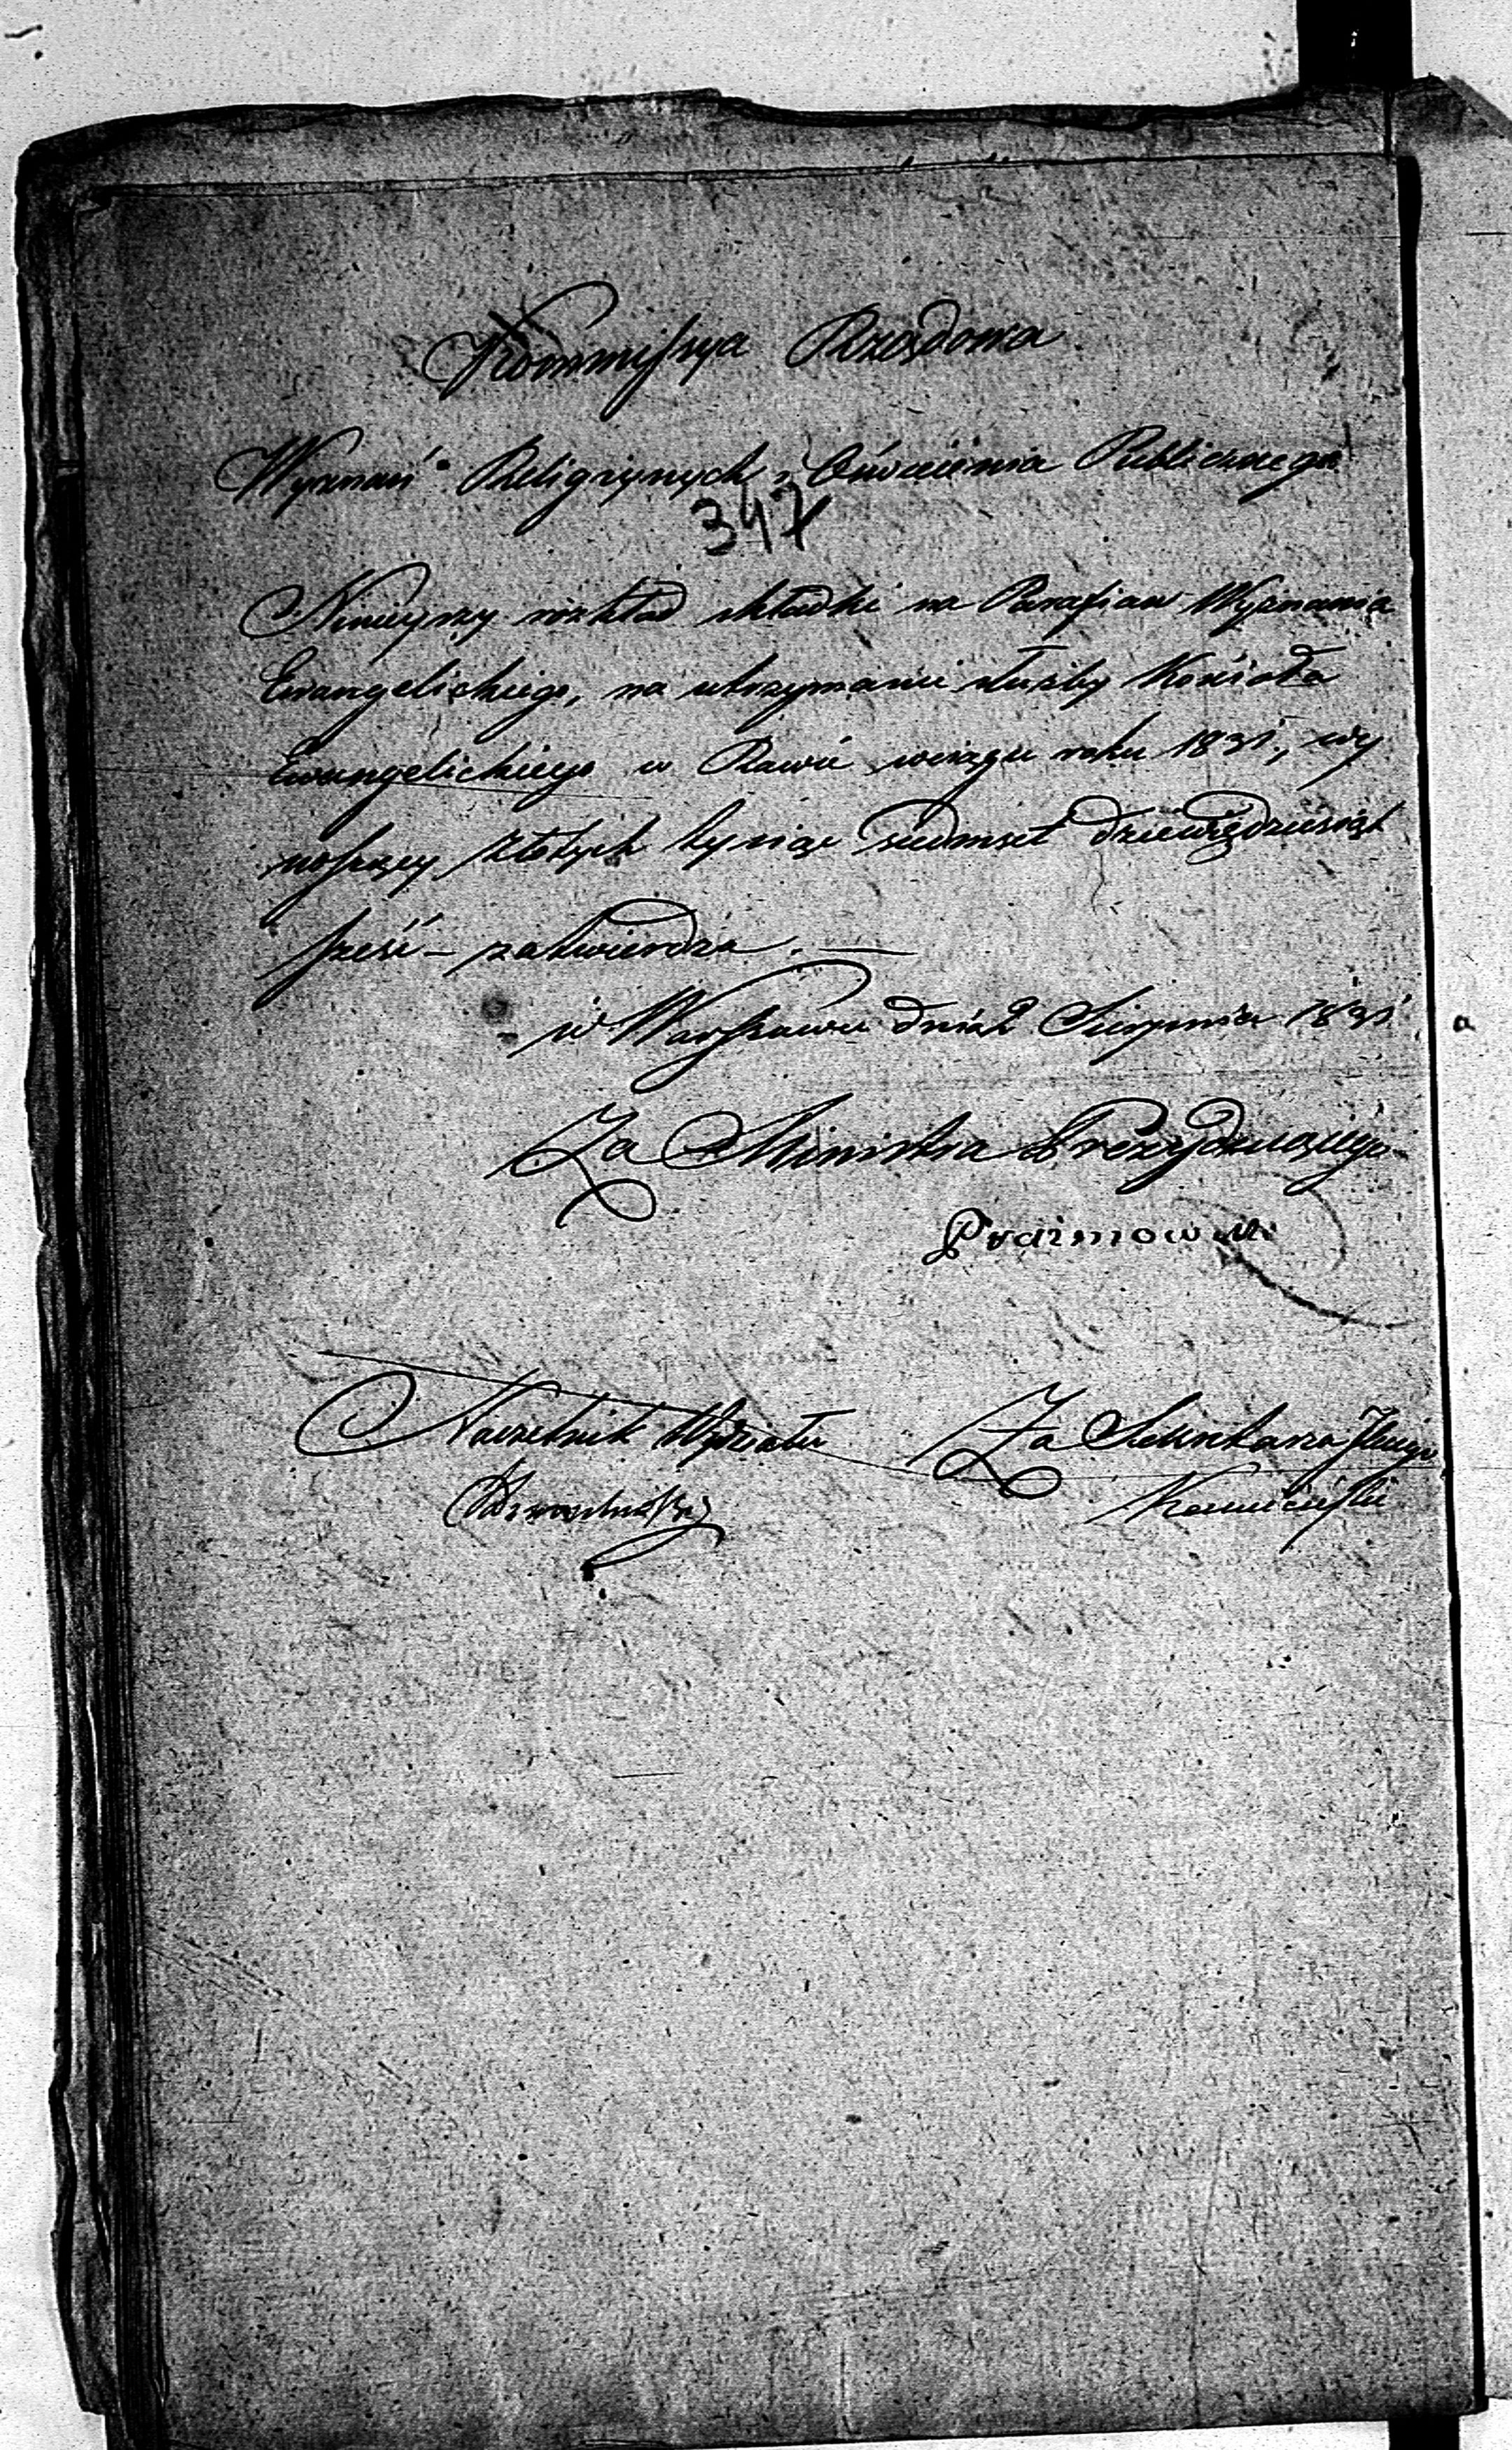 Kommissya Rządowa
Wyznań Religiynych i Oświecenia Publicznego
347
Ninieyszy rozkład składki na Parafian Wyznania
Ewangelickiego, na utrzymanie służby Kościoła
Ewangelickiego w Rawie wciągu roku 1831, wy
noszący złotych tysiąc siedmset dziewięćdziesiąt
sześć – zatwierdza. —
w Warszawie dnia 2 Sierpnia 1831
Za Ministra Prezydującego
Prażmowski
Naczelnik Wydziału Za Sekretarza Jlnego